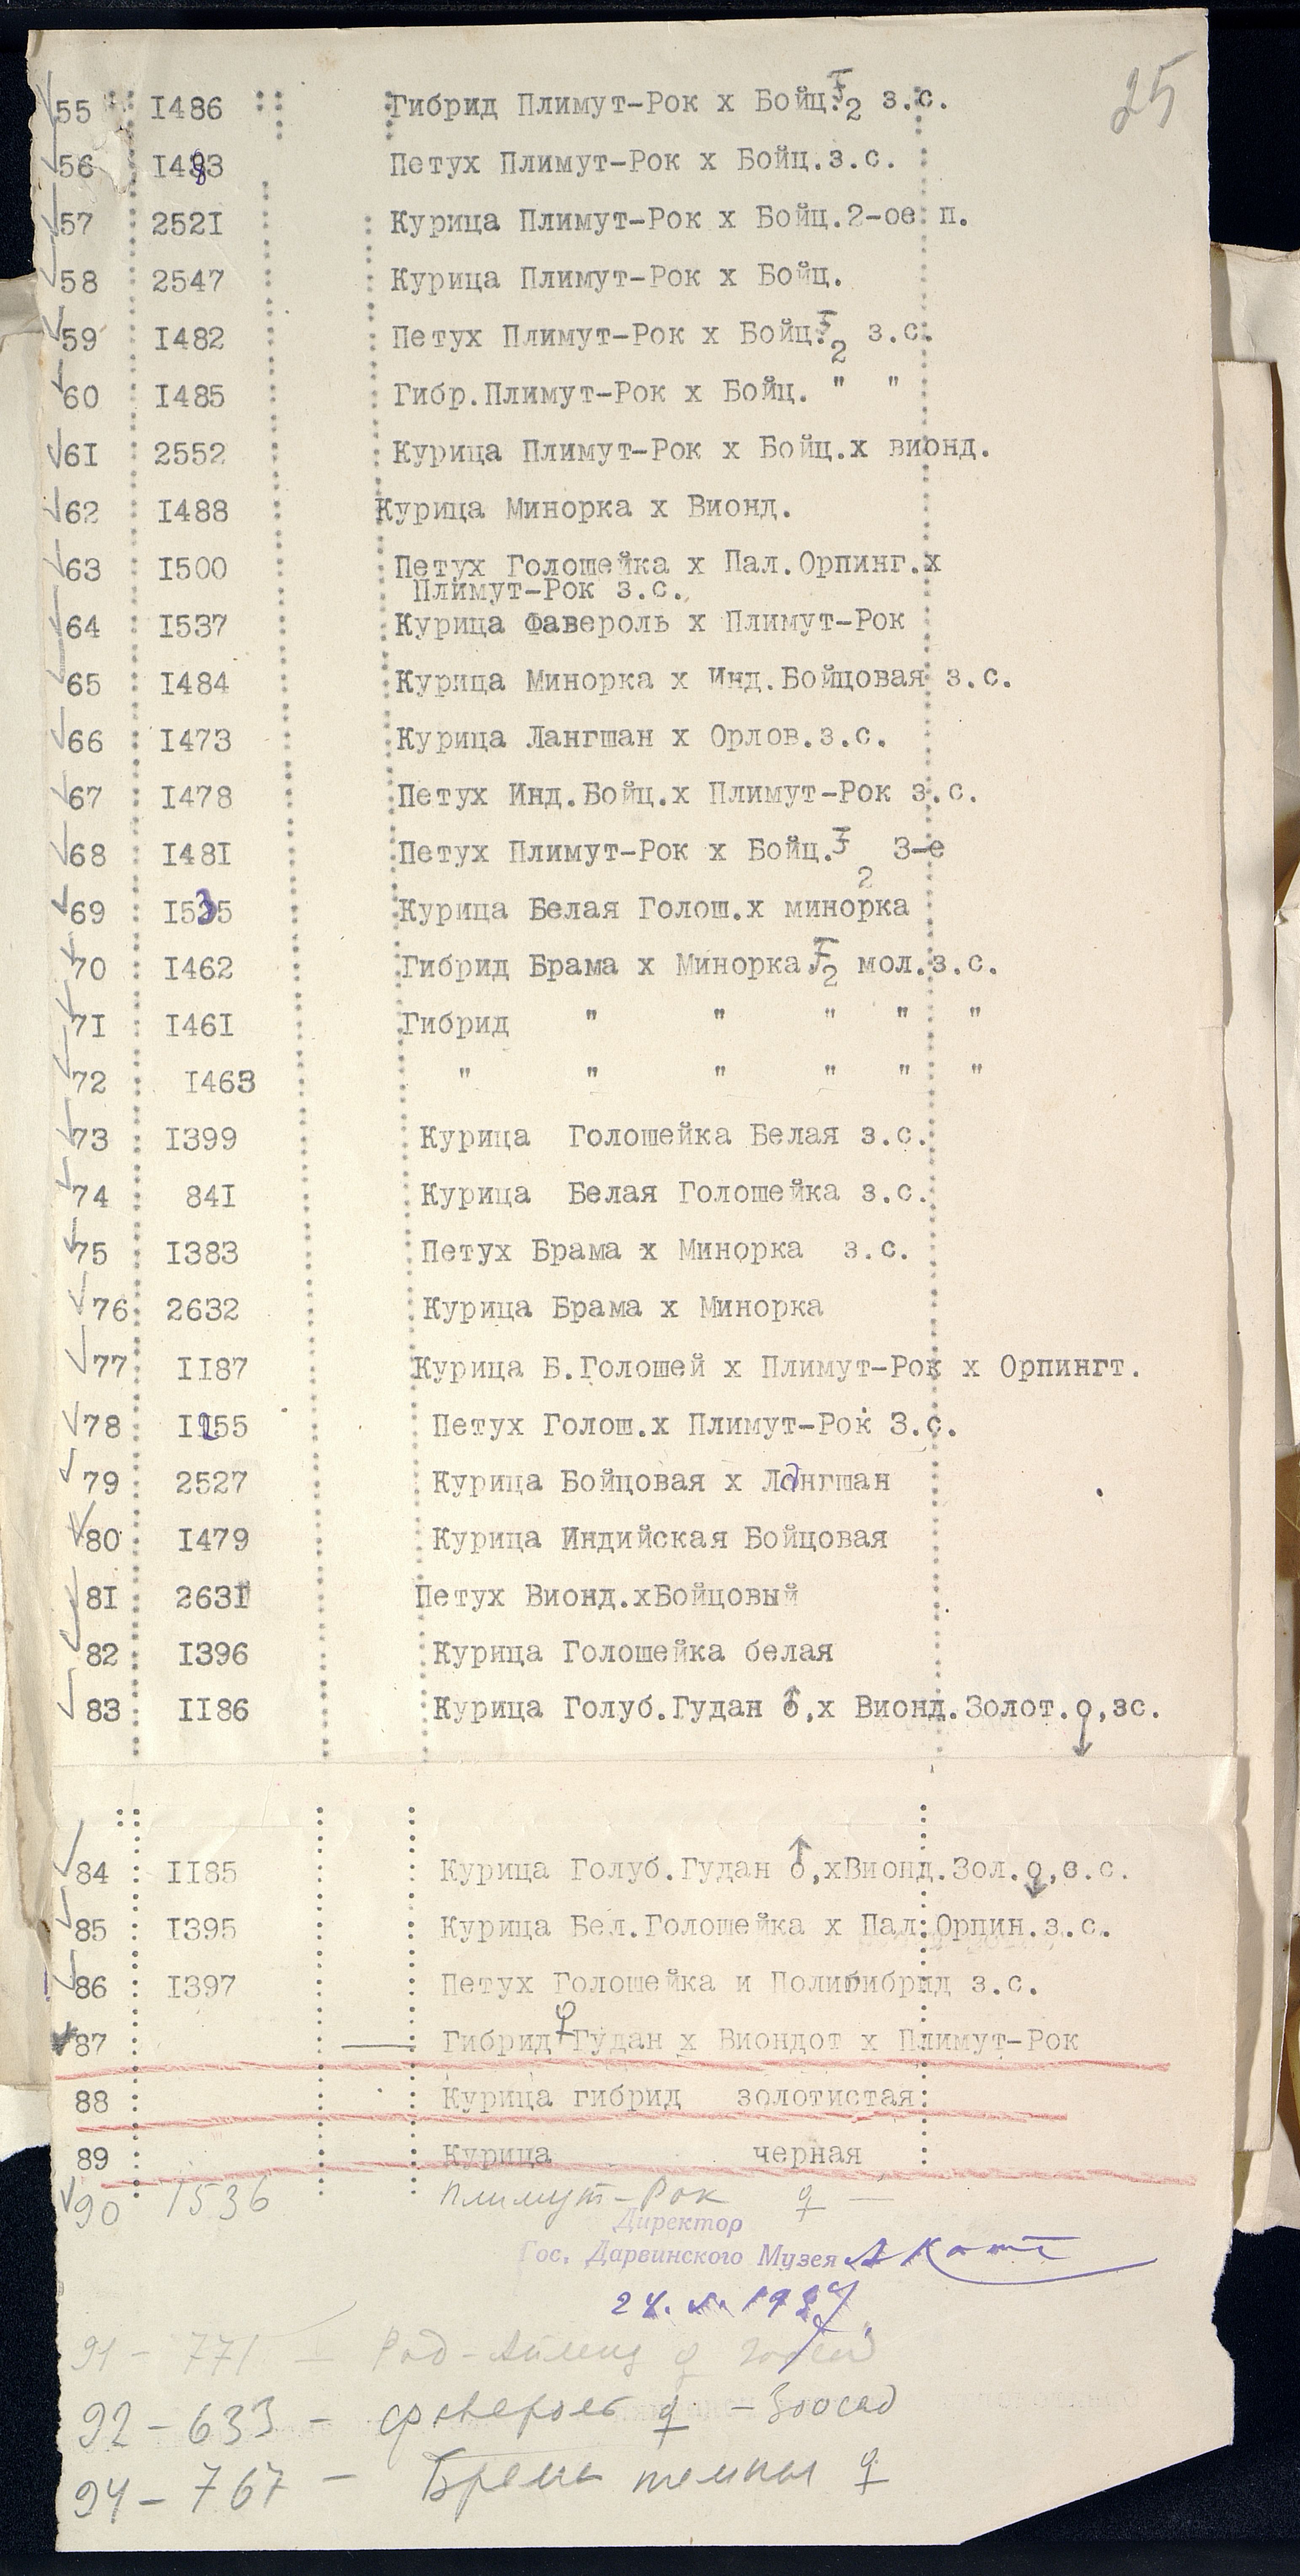 25
55 I486 Гибрид Плимут-Рок х Бойц.F2 з.с.
56 I483 Петух Плимут-Рок х Бойц.з.с.
57 252I Курица Плимут-Рок х Бойц.2-ое п.
58 2547 Курица Плимут-Рок х Бойц.
59 I482 Петух Плимут-Рок х Бойц.F2 з.с.
60 I485 Гибр.Плимут-Рок х Бойц. " "
6I 2552 Курица Плимут-Рок х Бойц.х вионд.
62 I488 Курица Минорка х Вионд.
63 I500 Петух Голошейка х Пал.Орпинг.х
Плимут-Рок з.с.
64 I537 Курица Фавероль х Плимут-Рок
65 I484 Курица Минорка х Инд.Бойцовая з.с.
66 I473 Курица Лангшан х Орлов.з.с.
67 I478 Петух Инд.Бойц.х Плимут-Рок з.с.
68 I48I Петух Плимут-Рок х Бойц.F2 3-е
69 I535 Курица Белая Голош.х минорка
70 I462 Гибрид Брама х Минорка F2 мол.з.с.
7I I46I Гибрид " " " " "
72 I463 " " " " " "
73 I399 Курица Голошейка Белая з.с.
74 84I Курица Белая Голошейка з.с.
75 I383 Петух Брама х Минорка з.с.
76 2632 Курица Брама х Минорка
77 II87 Курица Б.Голошей х Плимут-Рок х Орпингт.
78 I255 Петух Голош.х Плимут-Рок З.с.
79 2527 Курица Бойцовая х Лангшан
80 I479 Курица Индийская Бойцовая
8I 263I Петух Вионд.хБойцовый
82 I396 Курица Голошейка белая
83 II86 Курица Голуб.Гудан ♂,х Вионд.Золот.♀,зс.
84 II85 Курица Голуб.Гудан ♂,хВионд.Зол.♀,з.с.
85 I395 Курица Бел.Голошейка х Пал.Орпин.з.с.
86 I397 Петух Голошейка и Полигибрид з.с.
87 — Гибрид ♀ Гудан х Виондот х Плимут-Рок
88 Курица гибрид золотистая
89 Курица черная
90 1536 Плимут-Рок ♀ —
Директор
Гос. Дарвинского Музея А Котс
91 - 771 — Род-Айленд ♀
92 - 633 - фавероль ♀ - Зоосад
94 - 767 - Брама темная ♀